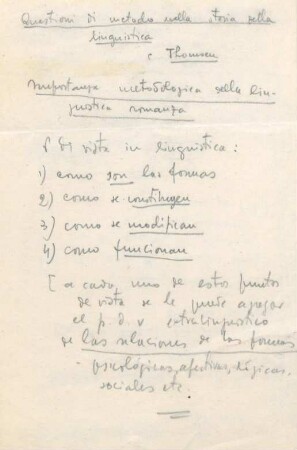 Questioni di metodo nella storia della
linguistica
e Thomsen
Importanza metodologica della lin-
guistica romanza
P. di vista in linguistica:
1) como son las formas
2) como se constituyen
3) como se modifican
4) como funcionan
[a cada uno de estos puntos
de vista se le puede agregar
el p. d. v. extralinguistico
de las relaciones de las formas
- psicológicas, afectivas, lógicas,
sociales etc.